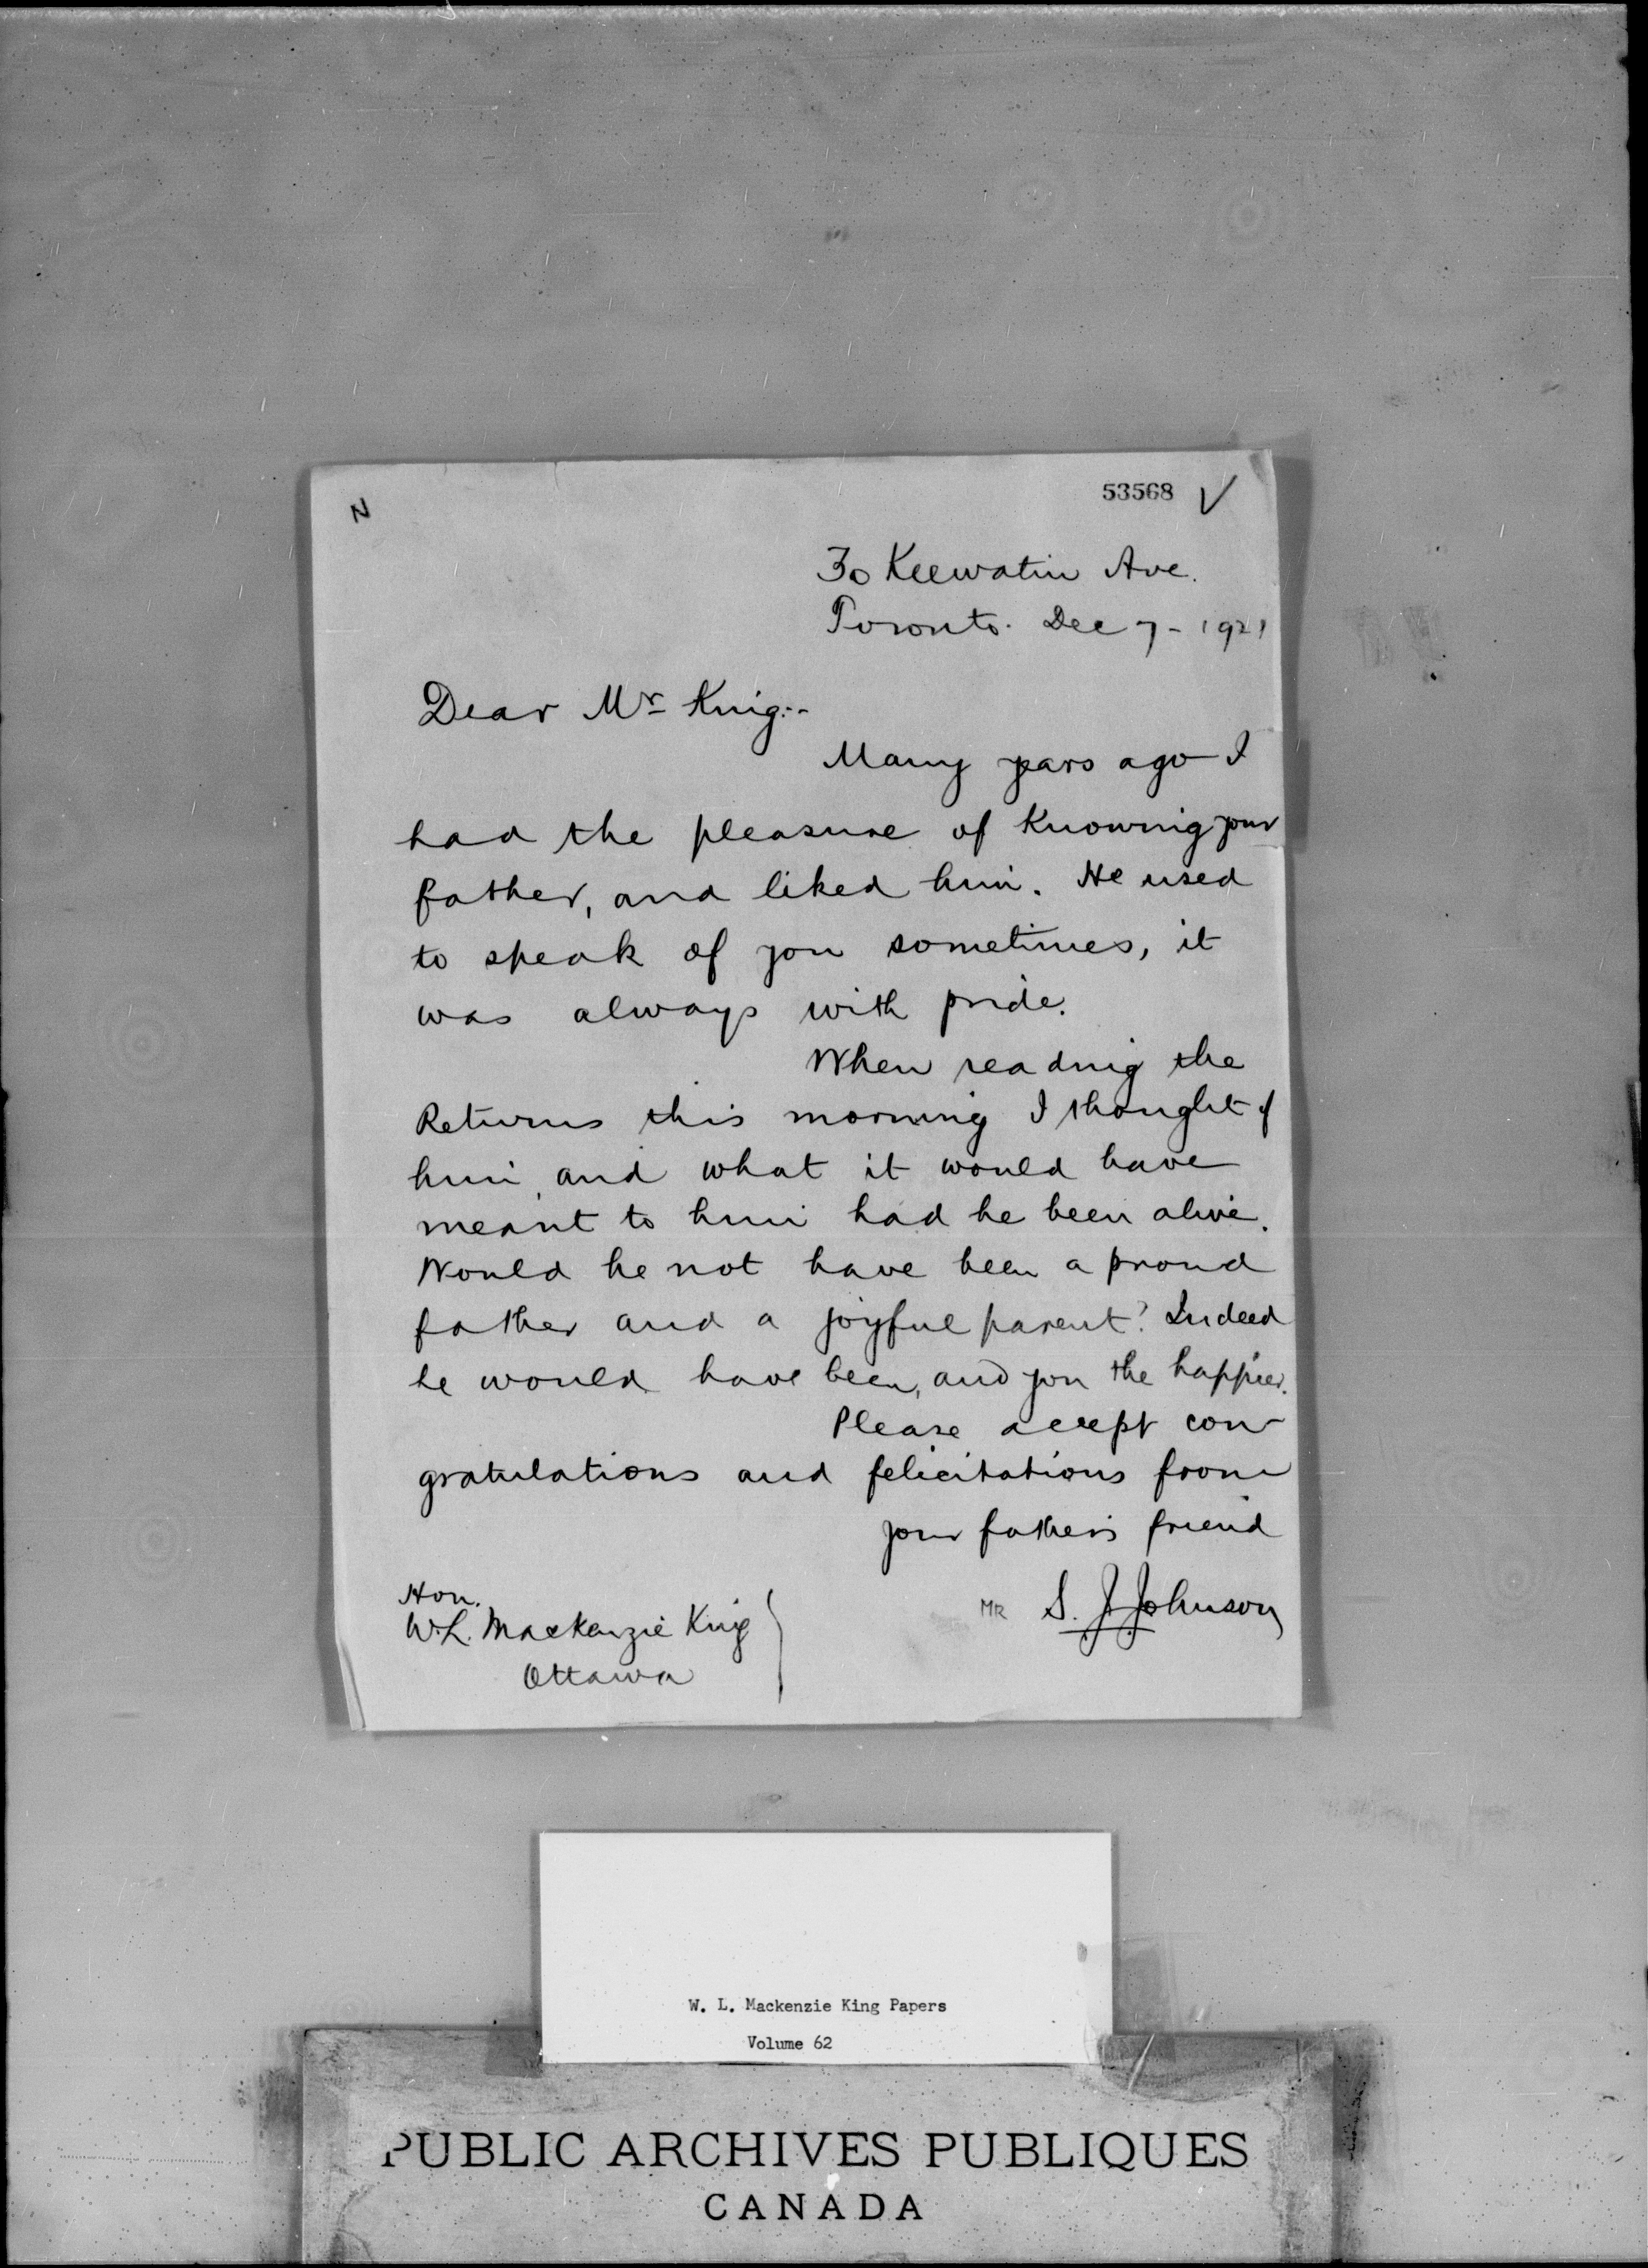 N
53568 ✓
30 Keewatin Ave.
Toronto. Dec 7 - 1921
Dear Mr King:-
Many years ago I
had the pleasure of knowing your
father, and liked him. He used
to speak of you sometimes, it
was always with pride.
When reading the
Returns this morning I thought of
him, and what it would have
meant to him had he been alive.
Would he not have been a proud
father and a joyful parent? Indeed
he would have been, and you the happier.
Please accept con-
gratulations and felicitations from
your father's friend
MR S. J. Johnson
Hon.
W. L. Mackenzie King
Ottawa
W. L. Mackenzie King Papers
Volume 62
PUBLIC ARCHIVES PUBLIQUES
CANADA